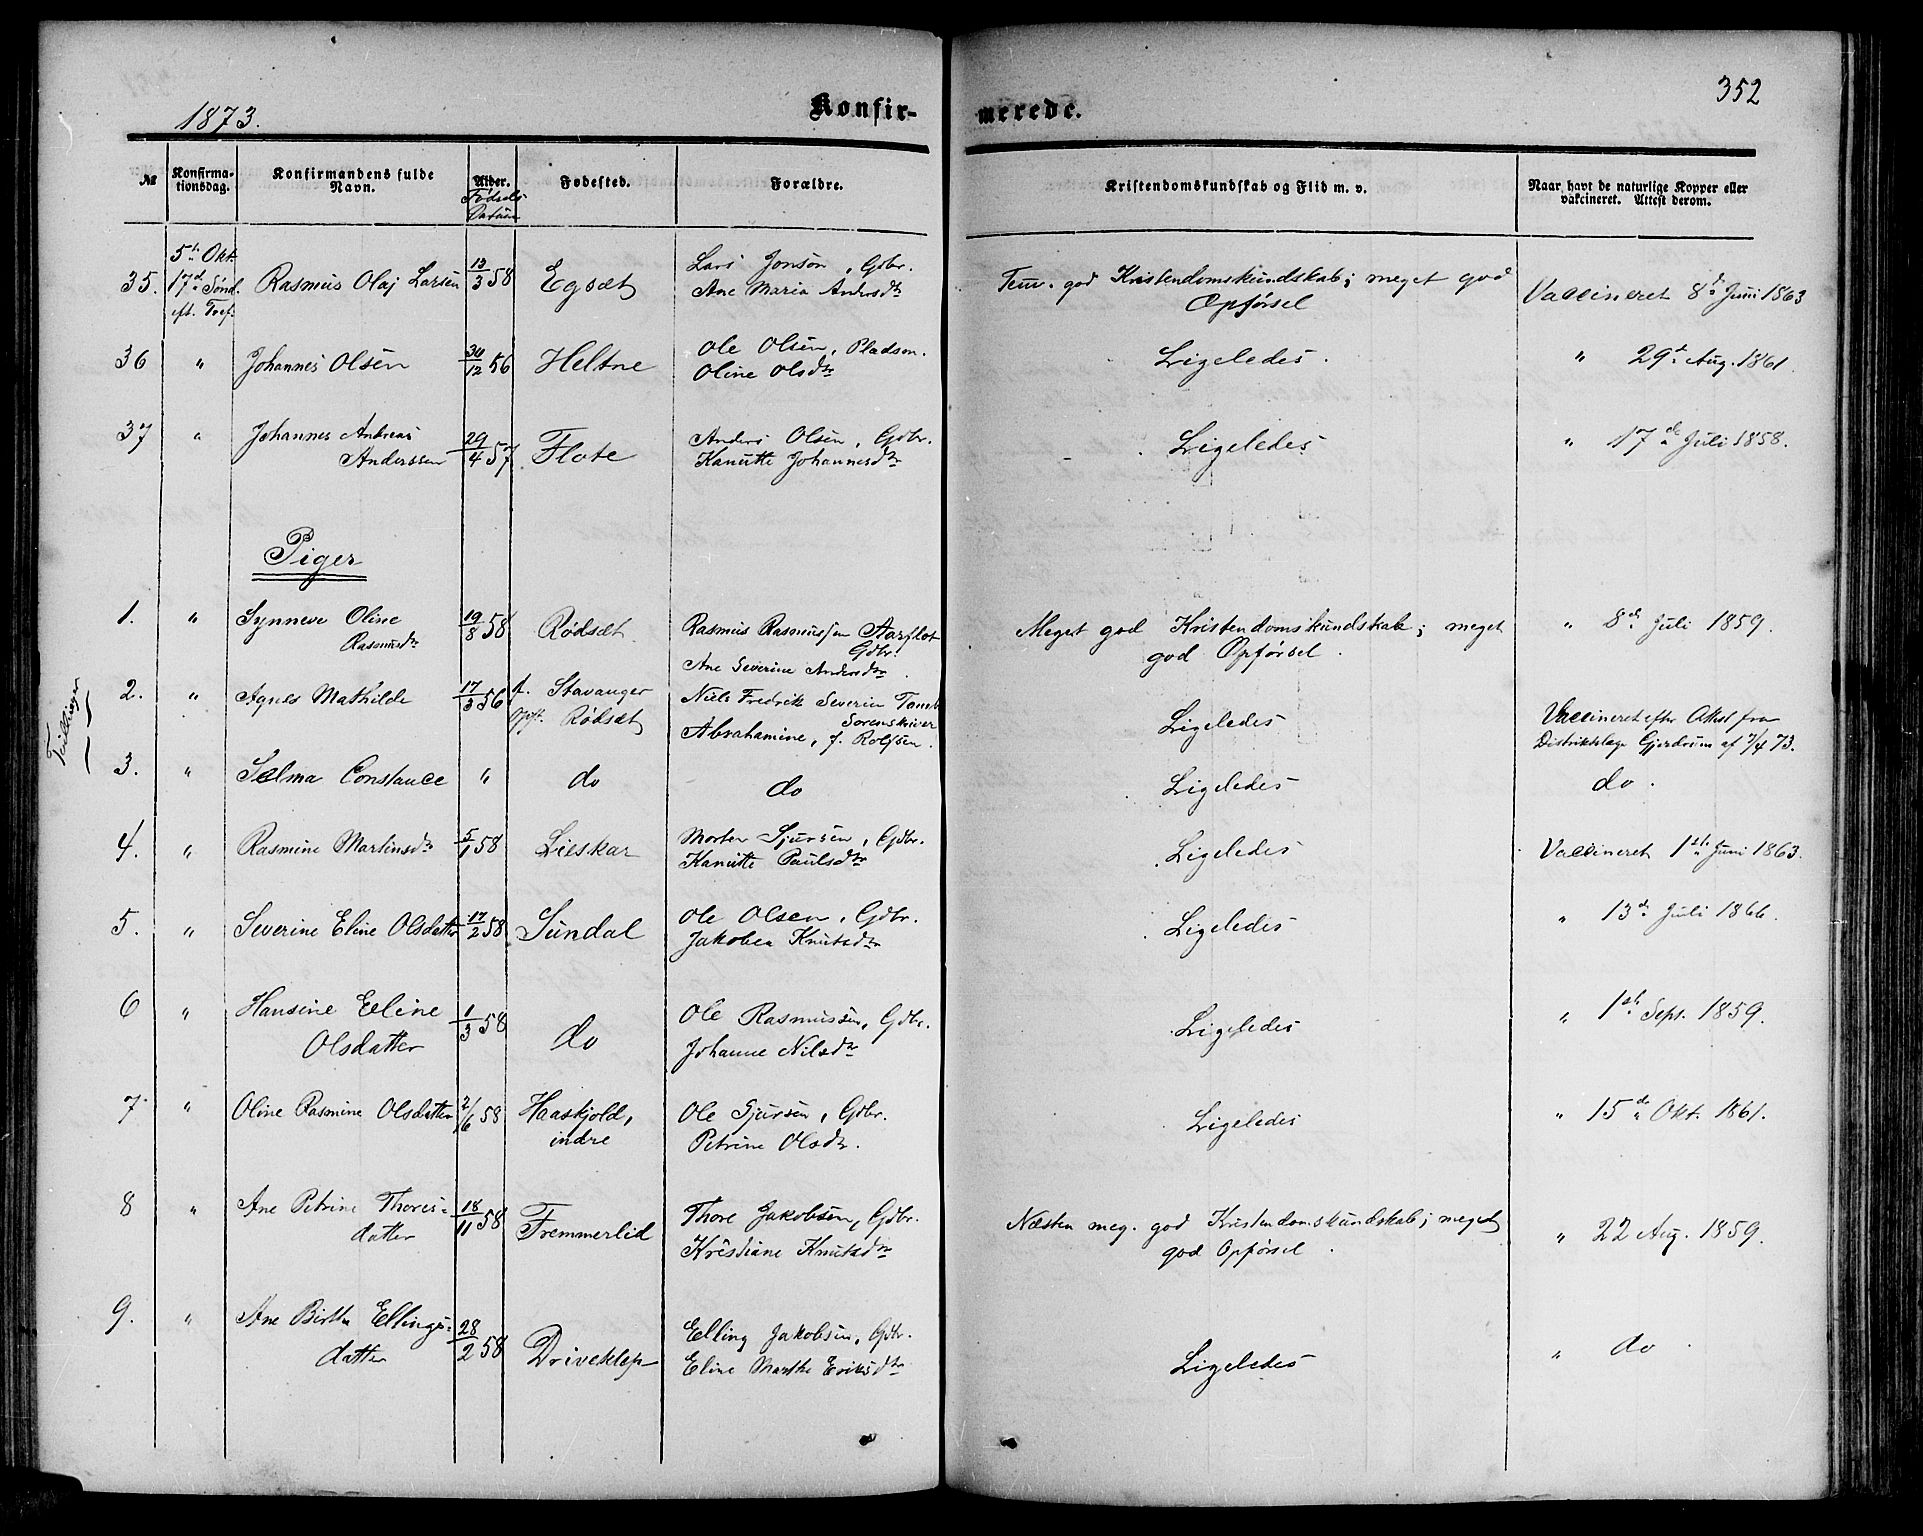 352
1873.
Konfir- merede.
№ Konfirma- tionsdag. Konfirmandens fulde Navn. Alder. Fødsels Datum Fødested. Forældre. Kristendomskundskab og Flid m. v. Naar havt de naturlige Kopper eller vakcineret. Attest derom.
5te Okt.
35. 17de Sønd. Rasmus Olaj Larsen 13/3 58 Egsæt Lars Jonsen, Gdbr. Tem. god Kristendomskundskab; meget god Vaccineret 8de Juni 1863
eft. Tref. Ane Maria Andersdtr Opførsel
36 " Johannes Olsen 30/12 56 Heltne Ole Olsen, Pladsm. Ligeledes. " 29de Aug. 1861
Oline Olsdtr
37 " Johannes Andreas 29/4 57 Flote Anders Olsen, Gdbr. Ligeledes " 17de Juli 1858.
Anderssen Kanutte Johannesdtr
Piger
1. " Synneve Oline 19/8 58 Rødsæt Rasmus Rasmussen Aarflot Meget god Kristendomskundskab; meget " 8de Juli 1859.
Rasmusdtr Gdbr. god Opførsel.
Ane Severine Andersdtr.
Tvillinger
2. " Agnes Mathilde 17/3 56 f. Stavanger Niels Fredrik Severin Ligeledes Vaccineret efter Attest fra
opf. Rødsæt Sorenskriver Distriktslæge Gjerdrum af 7/4 73.
Abrahamine, f. Rolfsen.
3. " Selma Constance " do do Ligeledes do.
4. " Rasmine Martinsdtr 5/1 58 Lieskar Morten Sjursen, Gdbr. Ligeledes Vaccineret 1ste Juni 1863.
Kanutte Paulsdtr
5. " Severine Eline Olsdatter 17/2 58 Sundal Ole Olsen, Gdbr. Ligeledes " 13de Juli 1866.
Jakobea Knutsdtr
6 " Hansine Elline 1/3 58 do Ole Rasmussen, Gdbr. Ligeledes " 1ste Sept. 1859.
Olsdatter Johanne Nilsdtr
7. " Oline Rasmine Olsdatter 2/6 58 Haaskjold, Ole Sjursen, Gdbr. Ligeledes " 15de Okt. 1861.
indre Petrine Olsdtr.
8 " Ane Petrine Thores- 18/11 58 Fremmerlid Thore Jakobsen, Gdbr. Næsten meg. god Kristendomskundskab; meget " 22 Aug. 1859.
datter Kristiane Knutsdtr god Opførsel.
9. " Ane Birthe Ellings- 28/2 58 Driveklep Elling Jakobsen, Gdbr. Ligeledes " do
datter Eline Marthe Eriksdtr